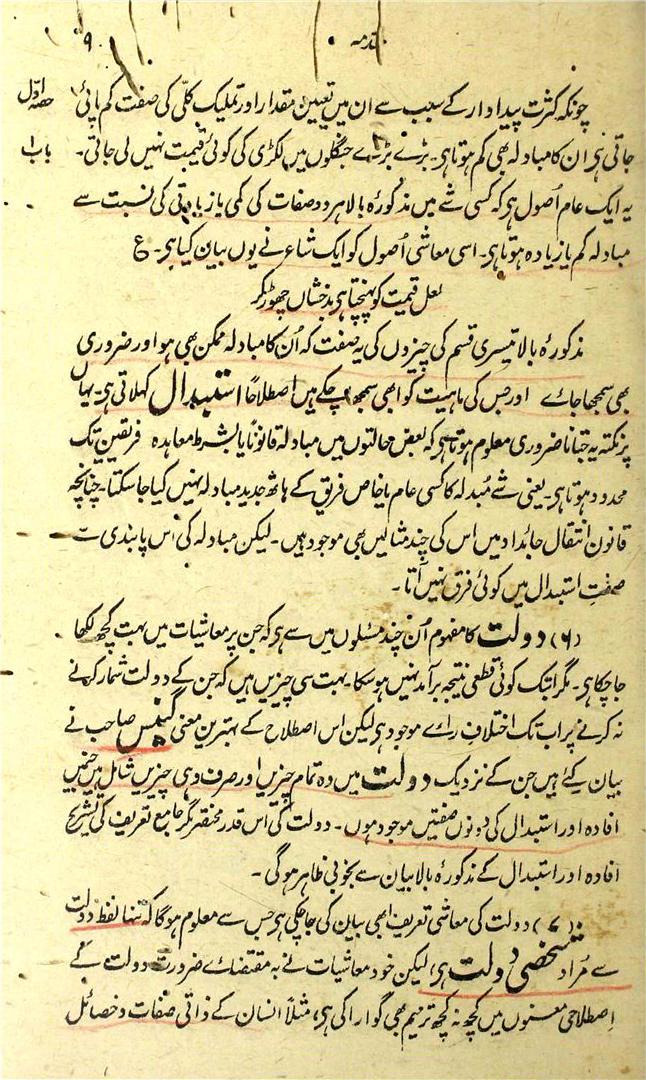 مقدمہ
۹
حصہ اوّل
باب ۱
چونکہ کثرت پیداوار کے سبب سے ان میں تعیین مقدار اور تملیک کلّی کی صفت کم پائی
جاتی ہی ان کا مبادلہ بھی کم ہوتا ہی۔ بڑے بڑے جنگلوں میں لکڑی کی کوئی قیمت نہیں لی جاتی۔
یہ ایک عام اُصول ہی کہ کسی شے میں مذکورۂ بالا ہر دو صفات کی کمی یا زیادتی کی نسبت سے
مبادلہ کم یا زیادہ ہوتا ہی۔ اسی معاشی اُصول کو ایک شاعر نے یوں بیان کیا ہی۔ ع
لعل قیمت کو پہنچتا ہی بدخشاں چھوڑ کر
مذکورۂ بالا تیسری قسم کی چیزوں کی یہ صفت کہ اُن کا مبادلہ ممکن بھی ہو اور ضروری
بھی سمجھا جائے اور جس کی ماہیت کو ابھی سمجھ چکے ہیں اصطلاحًا استبدال کہلاتی ہی۔ یہاں
پر نکتہ یہ جتانا ضروری معلوم ہوتا ہی کہ بعض حالتوں میں مبادلہ قانونًا یا بشرط معاہدہ فریقین تک
محدود ہوتا ہی۔ یعنی شے مُبدلہ کا کسی عام یا خاص فریق کے ہاتھ جدید مبادلہ نہیں کیا جا سکتا۔ چنانچہ
قانون انتقال جائداد میں اس کی چند مثالیں بھی موجود ہیں۔ لیکن مبادلہ کی اس پابندی سے
صفتِ استبدال میں کوئی فرق نہیں آتا۔
(۶) دولت کا مفہوم اُن چند مسئلوں میں سے ہی کہ جن پر معاشیات میں بہت کچھ لکھا
جا چکا ہی۔ مگر ابتک کوئی قطعی نتیجہ برآمد نہیں ہو سکا۔ بہت سی چیزیں ہیں کہ جن کے دولت شمار کرنے
نہ کرنے پر اب تک اختلافِ رائے موجود ہی لیکن اس اصطلاح کے بہترین معنی کینس صاحب نے
بیان کئے ہیں جن کے نزدیک دولت میں وہ تمام چیزیں اور صرف وہی چیزیں شامل ہیں جنمیں
افادہ اور استبدال کی دونوں صفتیں موجود ہوں۔ دولت کی اس قدر مختصر مگر جامع تعریف کی تشریح
افادہ اور استبدال کے مذکورۂ بالا بیان سے بخوبی ظاہر ہو گی۔
(۷) دولت کی معاشی تعریف ابھی بیان کی جا چکی ہی جس سے معلوم ہو گا کہ تنہا لفظ دولت
سے مُراد شخصی دولت ہی لیکن خود معاشیات نے بہ مقتضائے ضرورت دولت کے
اِصطلاحی معنوں میں کچھ نہ کچھ ترمیم بھی گوارا کی ہی، مثلًا انسان کے ذاتی صفات و خصائل